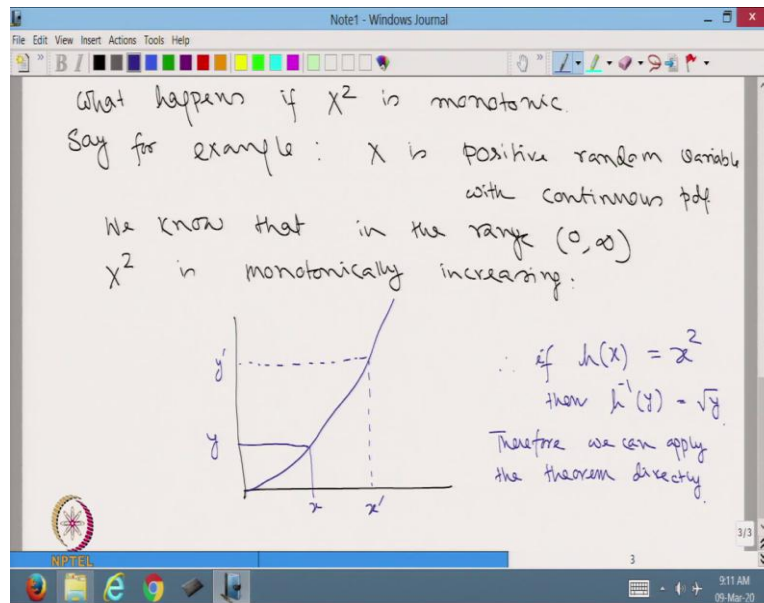 Note1 - Windows Journal
File Edit View Insert Actions Tools Help
B I
What happens if X² is monotonic.
Say for example : X is positive random variable
with continuous pdf.
We know that in the range (0, ∞)
X² is monotonically increasing.
y'
y
x x'
∴ if h(x) = x²
then h⁻¹(y) = √y
Therefore we can apply
the theorem directly.
NPTEL
3/3
3
9:11 AM
09-Mar-20